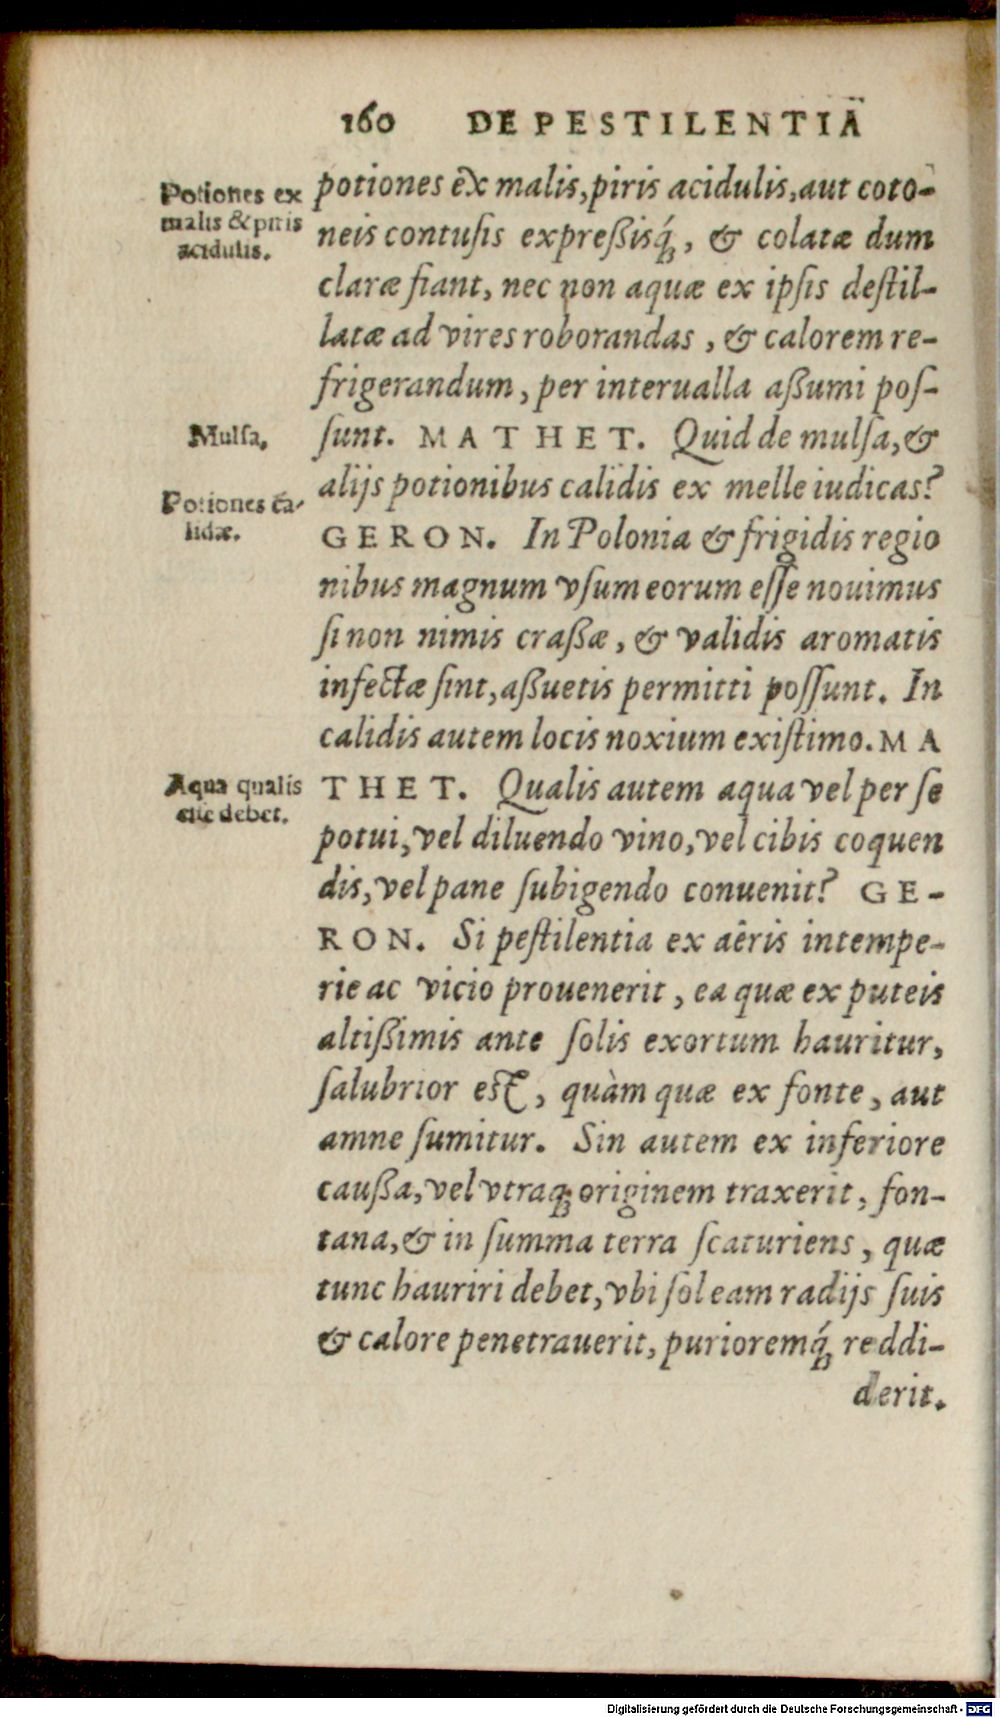 160 DE PESTILENTIA
Potiones ex
malis & piris
acidulis.
potiones ex malis, piris acidulis, aut coto-
neis contusis expreßisq́;, & colatæ dum
claræ fiant, nec non aquæ ex ipsis destil-
latæ ad vires roborandas, & calorem re-
frigerandum, per interualla aßumi pos-
Mulsa.
sunt. MATHET. Quid de mulsa, &
Potiones ca-
lidæ.
alijs potionibus calidis ex melle iudicas?
GERON. In Polonia & frigidis regio
nibus magnum vsum eorum esse nouimus
si non nimis craßæ, & validis aromatis
infectæ sint, aßuetis permitti possunt. In
calidis autem locis noxium existimo. MA
Aqua qualis
esse debet.
THET. Qualis autem aqua vel per se
potui, vel diluendo vino, vel cibis coquen
dis, vel pane subigendo conuenit? GE-
RON. Si pestilentia ex aëris intempe-
rie ac vicio prouenerit, ea quæ ex puteis
altißimis ante solis exortum hauritur,
salubrior est, quàm quæ ex fonte, aut
amne sumitur. Sin autem ex inferiore
caußa, vel vtraq; originem traxerit, fon-
tana, & in summa terra scaturiens, quæ
tunc hauriri debet, vbi sol eam radijs suis
& calore penetrauerit, purioremq́; reddi-
derit.
Digitalisierung gefördert durch die Deutsche Forschungsgemeinschaft - DFG